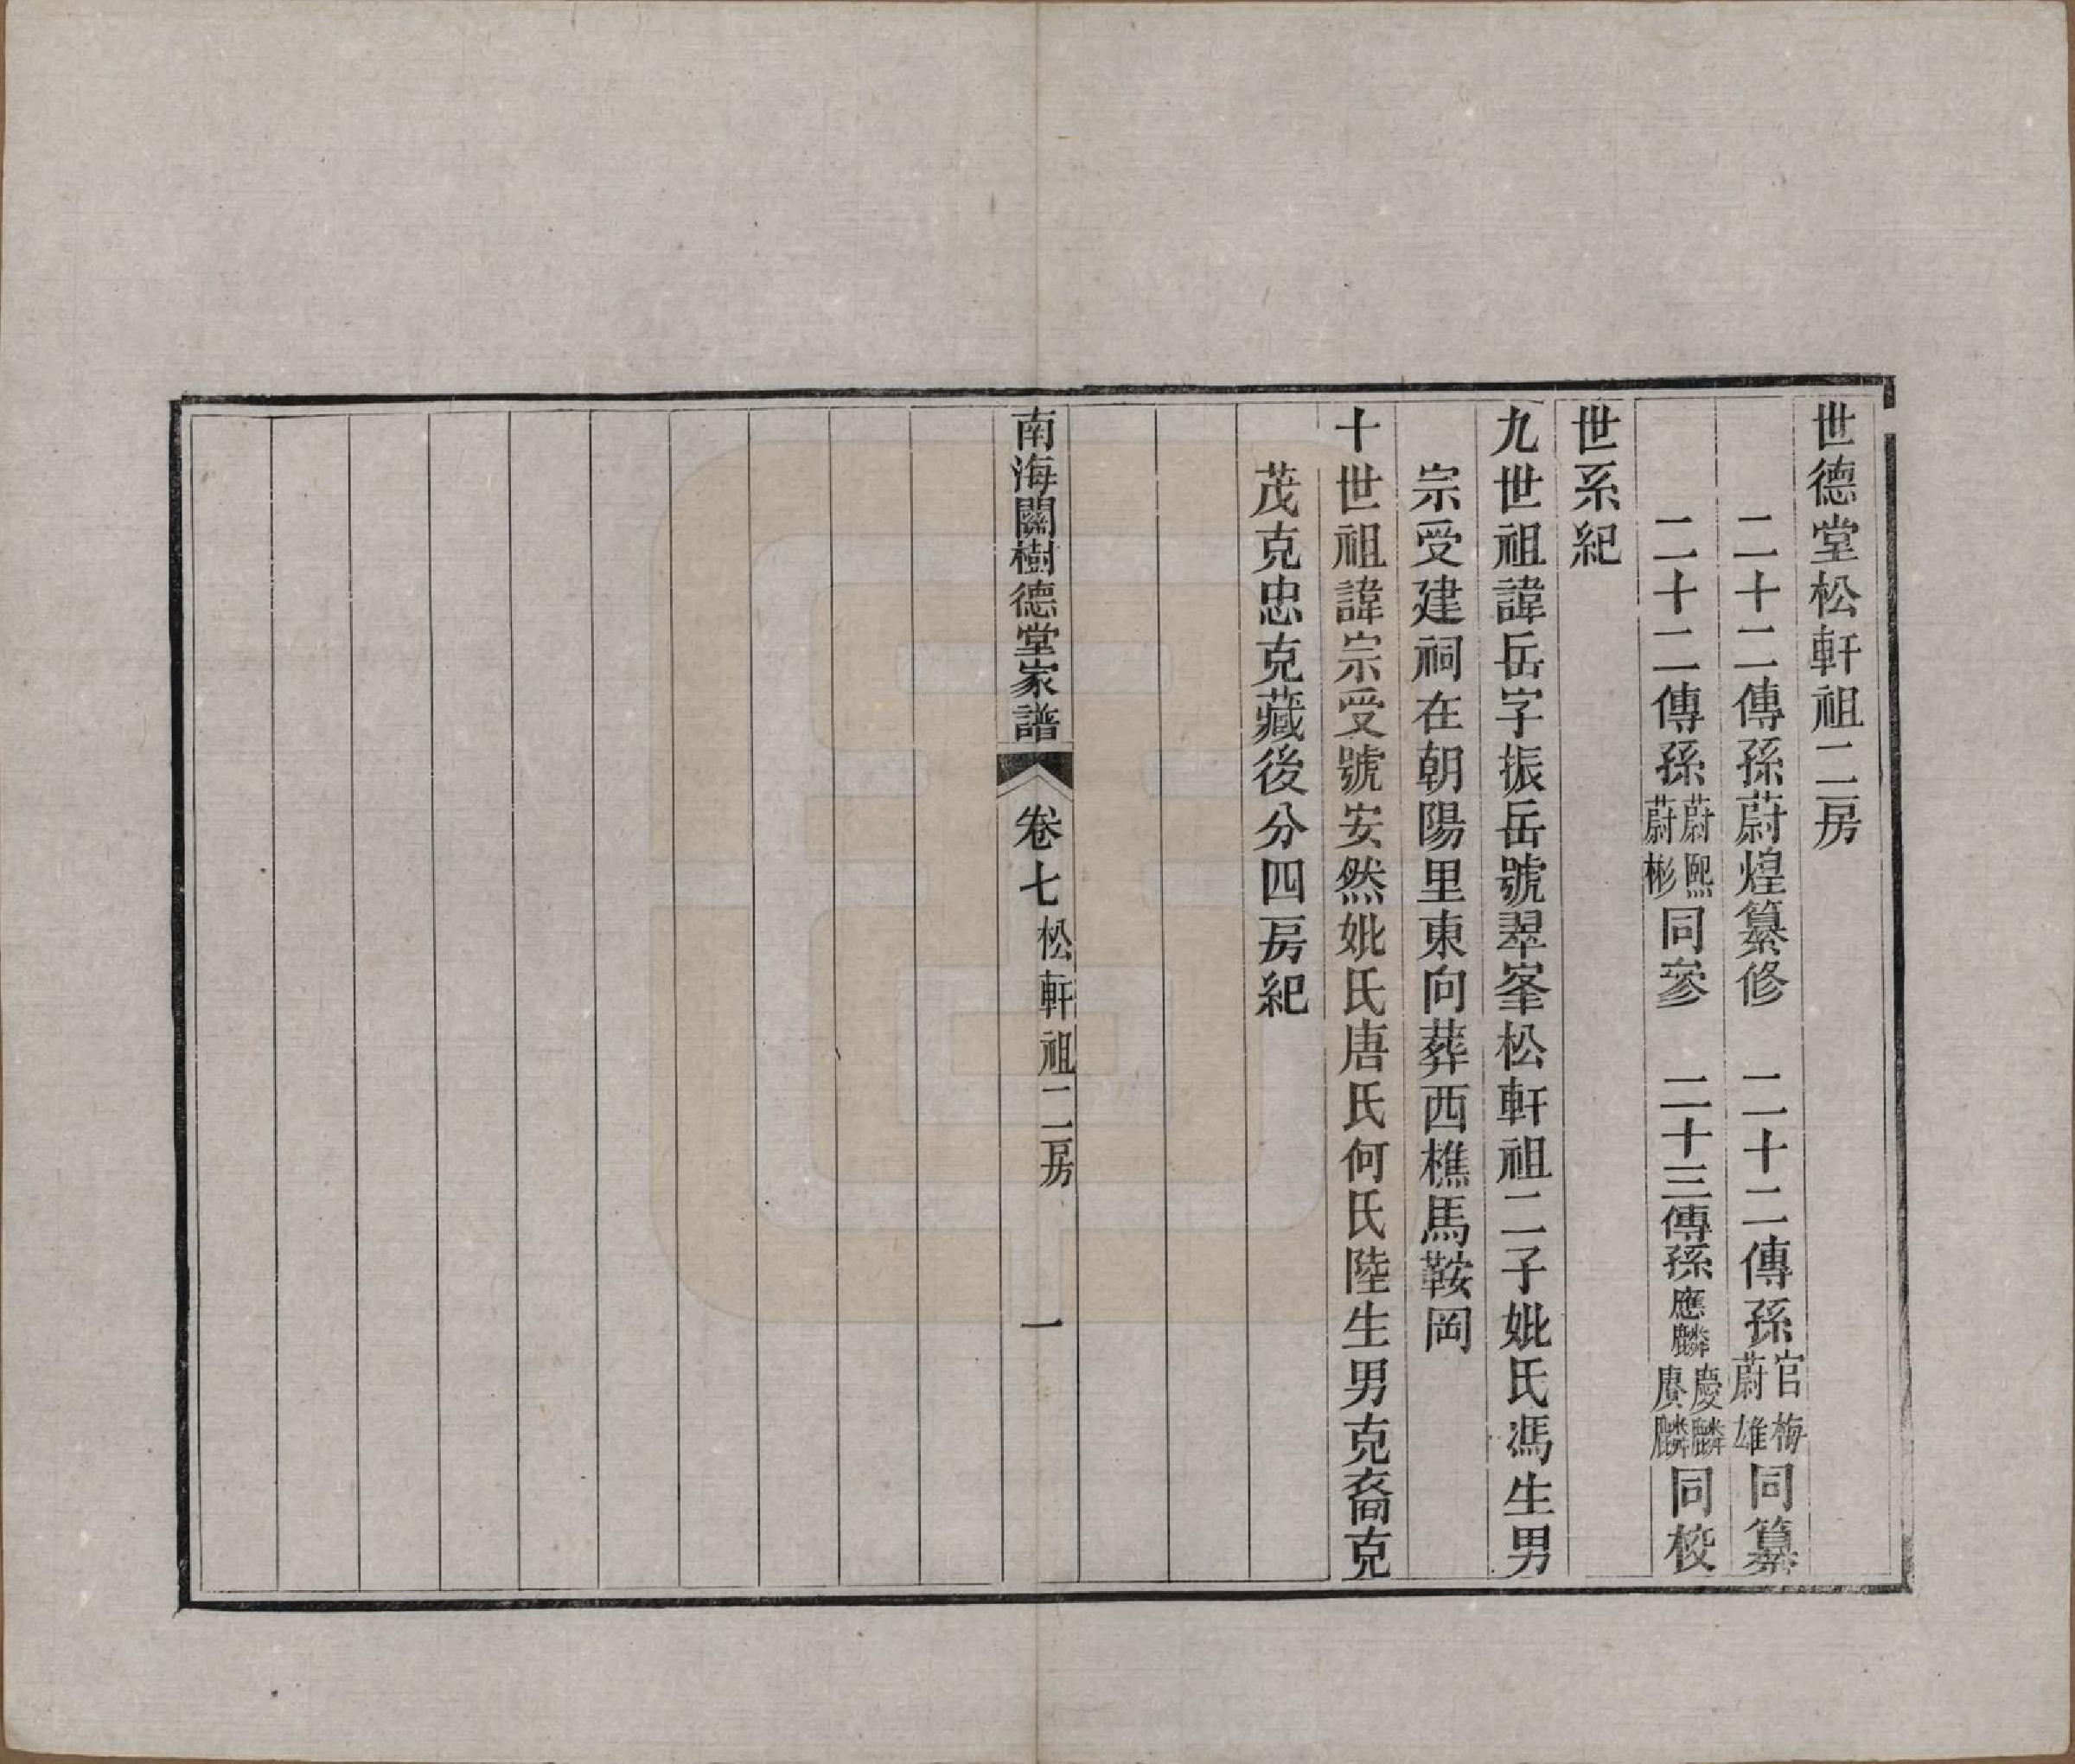 世德堂松軒祖二房
二十二傳孫蔚煌纂修　二十二傳孫官梅蔚雄同纂
二十二傳孫蔚熙蔚彬同參　二十三傳孫應麟慶麟賡麟同校
世系紀
九世祖諱岳字振岳號翠峯松軒祖二子妣氏馮生男
宗受建祠在朝陽里東向葬西樵馬鞍岡
十世祖諱宗受號安然妣氏唐氏何氏陸生男克裔克
茂克忠克藏後分四房紀
南海關樹德堂家譜　卷七　松軒祖二房　一